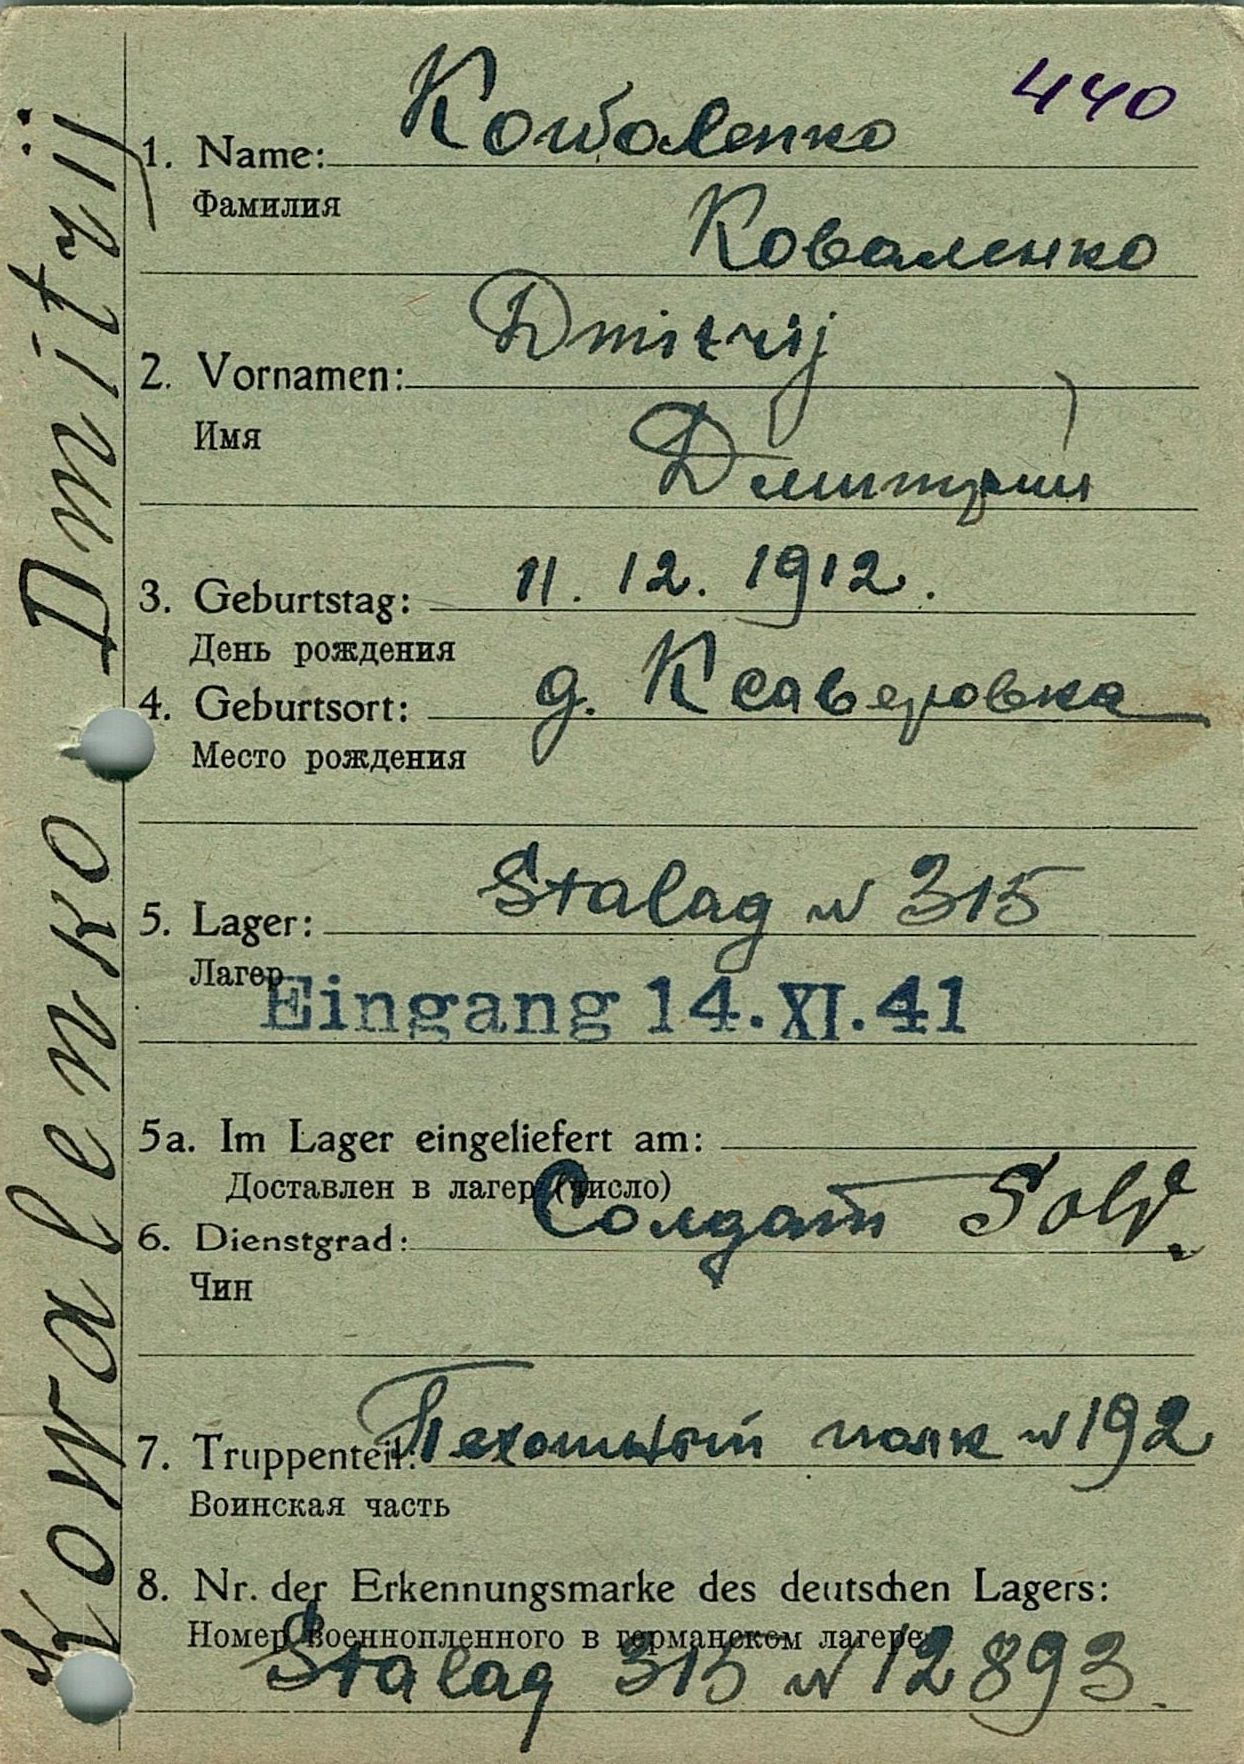 440
Kowalenko
1. Name:
Фамилия
Коваленко
Dmitrij
2. Vornamen:
Имя
Дмитрий
3. Geburtstag: 11. 12. 1912.
День рождения
4. Geburtsort: д. Ксаверовка
Место рождения
5. Lager: Stalag № 315
Лагер
Eingang 14.XI.41
5a. Im Lager eingeliefert am:
Доставлен в лагер (число)
6. Dienstgrad: Солдат Sold.
Чин
7. Truppenteil: Пехотный полк № 192
Воинская часть
8. Nr. der Erkennungsmarke des deutschen Lagers:
Номер военнопленного в германском лагере
Stalag 315 № 12893.
Kowalenko Dmitrij